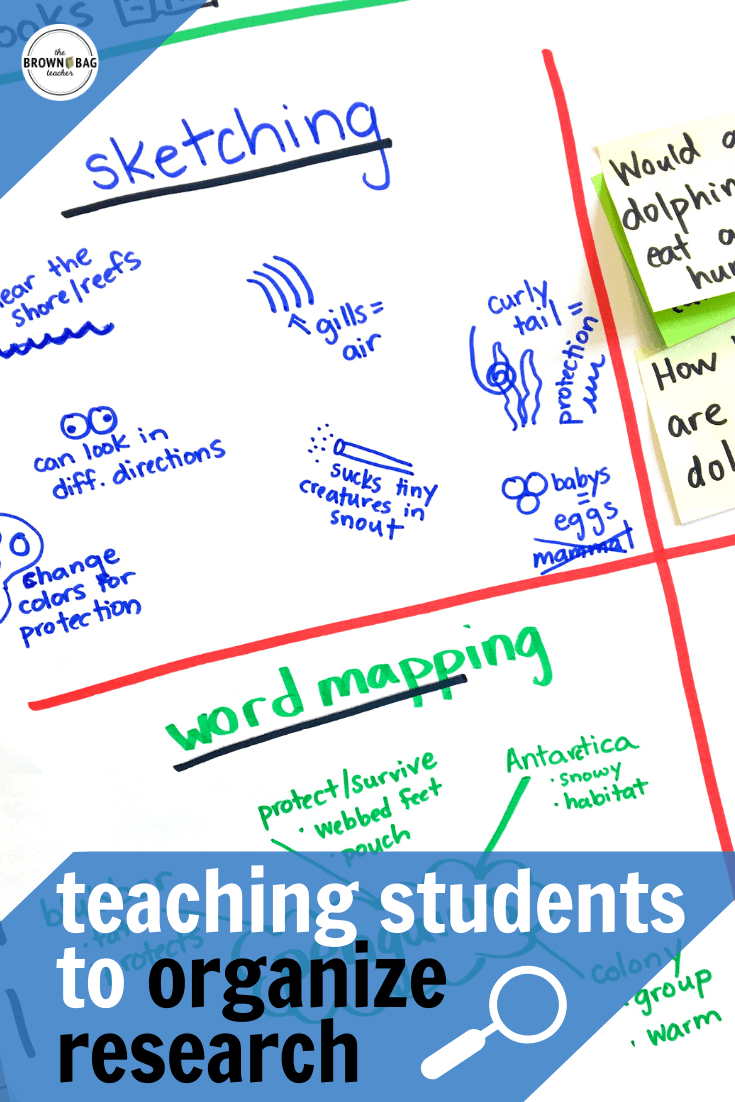 ooks
the
BROWN BAG
teacher
sketching
near the
shore/reefs
gills =
air
curly
tail =
protection
can look in
diff. directions
sucks tiny
creatures in
snout
babys
=
eggs
mammal
change
colors for
protection
Would a
dolphin
eat a
hum
How
are
dol
word mapping
protect/survive
• webbed feet
• pouch
Antarctica
• snowy
• habitat
blubber
protects
penguins
colony
• group
• warm
teaching students
to organize
research